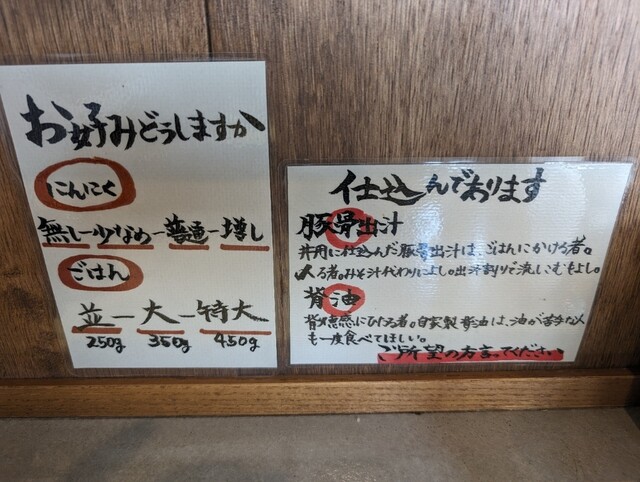 お好みどうしますか
にんにく
無し－少なめ－普通－増し
ごはん
並－大－特大
250g 350g 450g
仕込んであります
豚骨出汁
丼丹に仕込んだ豚骨出汁は、ごはんにかける者。
入る者。みそ汁代わりによし。出汁割りで流しこむもよし。
背油
背徳感にひたる者。自家製背油は、油が苦手な人
も一度食べてほしい。
ご所望の方言ってください